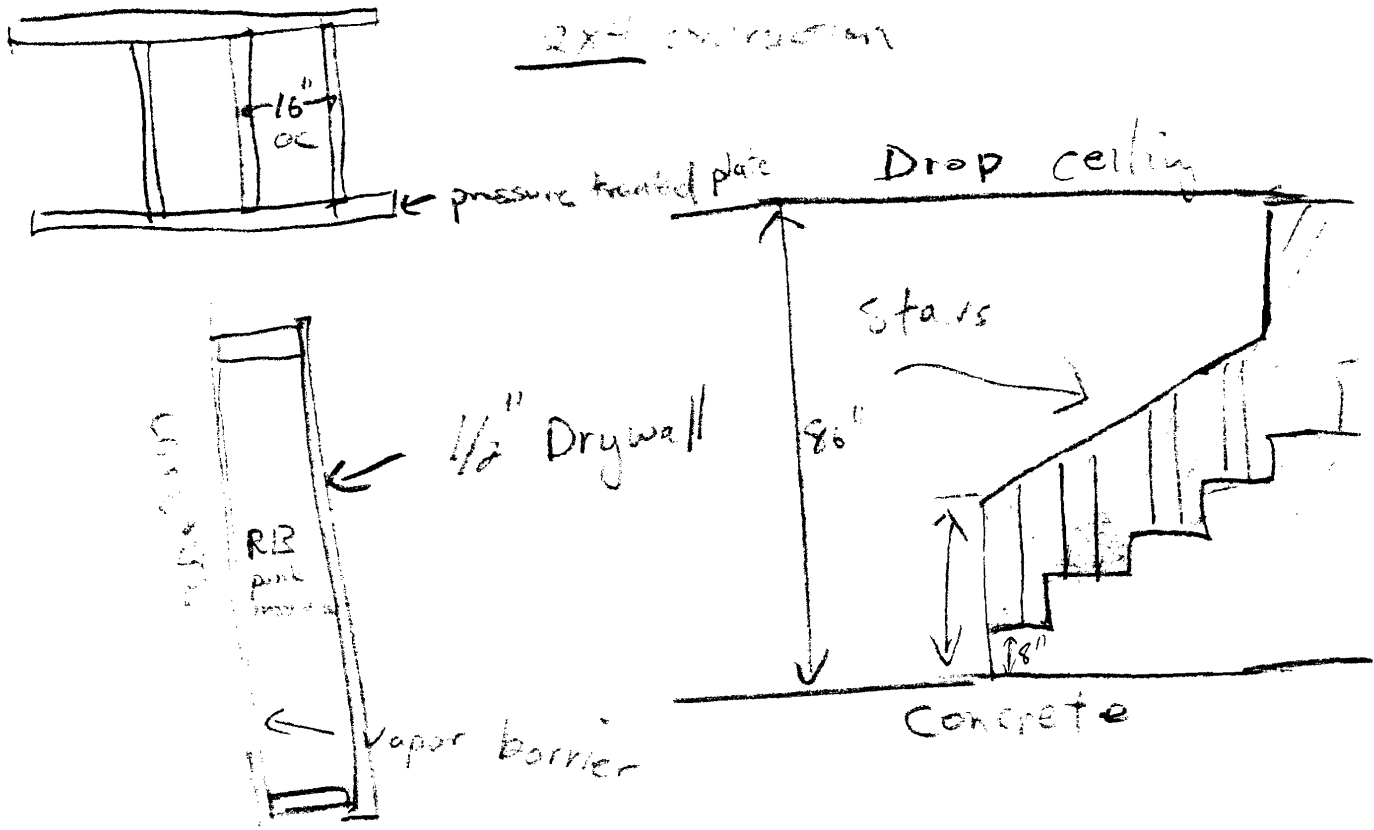 2x4 construction
16"
OC
pressure treated plate
Drop ceiling
Stairs
86"
1/2" Drywall
R13
pink
8"
vapor barrier
Concrete